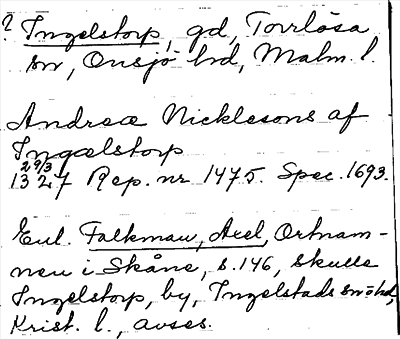 ? Ingelstorp, gd, Torrlösa
sn, Onsjö hd, Malm. l.
Andreæ Nicklesons af
Ingælstorp
29/3
1327 Rep. nr 1475. Spec. 1693.
Enl. Falkman, Axel, Ortnam-
nen i Skåne, s. 146, skulle
Ingelstorp, by, Ingelstads sn o hd,
Krist. l., avses.